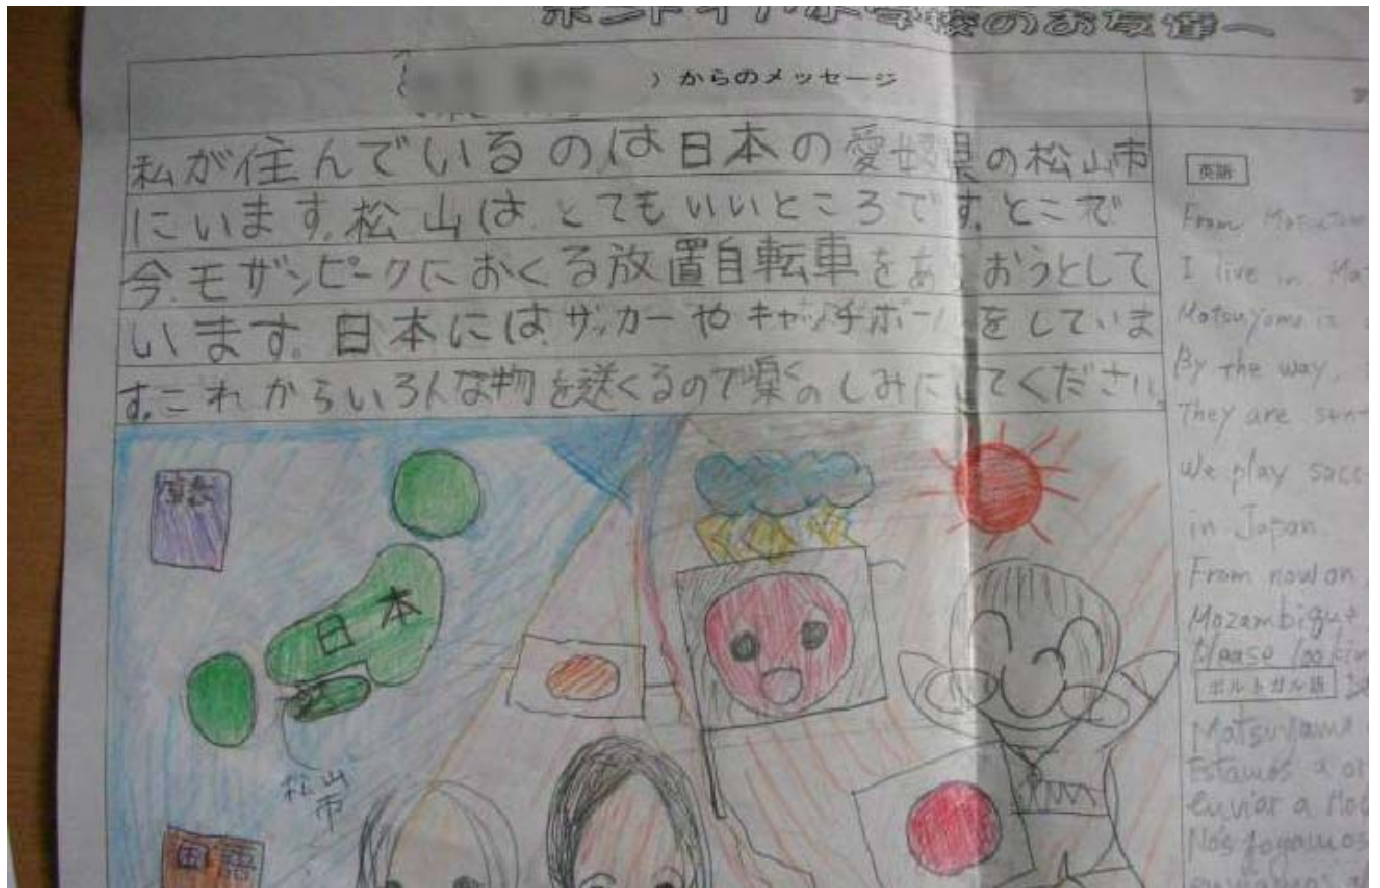 小学校のお友達へ
)からのメッセージ
私が住んでいるのは日本の愛媛県の松山市
にいます。松山は、とてもいいところです。とこで
今、モザンビークにおくる放置自転車をあ おうとして
います。日本には、サッカーやキャッチボールをしていま
す。これからいろんな物を送くるので楽くのしみにしてください。
算数
日本
松山
市
国語
英語
From
I live in Ma
Matsuyama is
By the way,
They are sen
We play socc
in Japan.
From now on,
Mozambique
Please lookin
ポルトガル語
Matsuyama
Estamos a or
Enviar a Moc
Nós jogamos